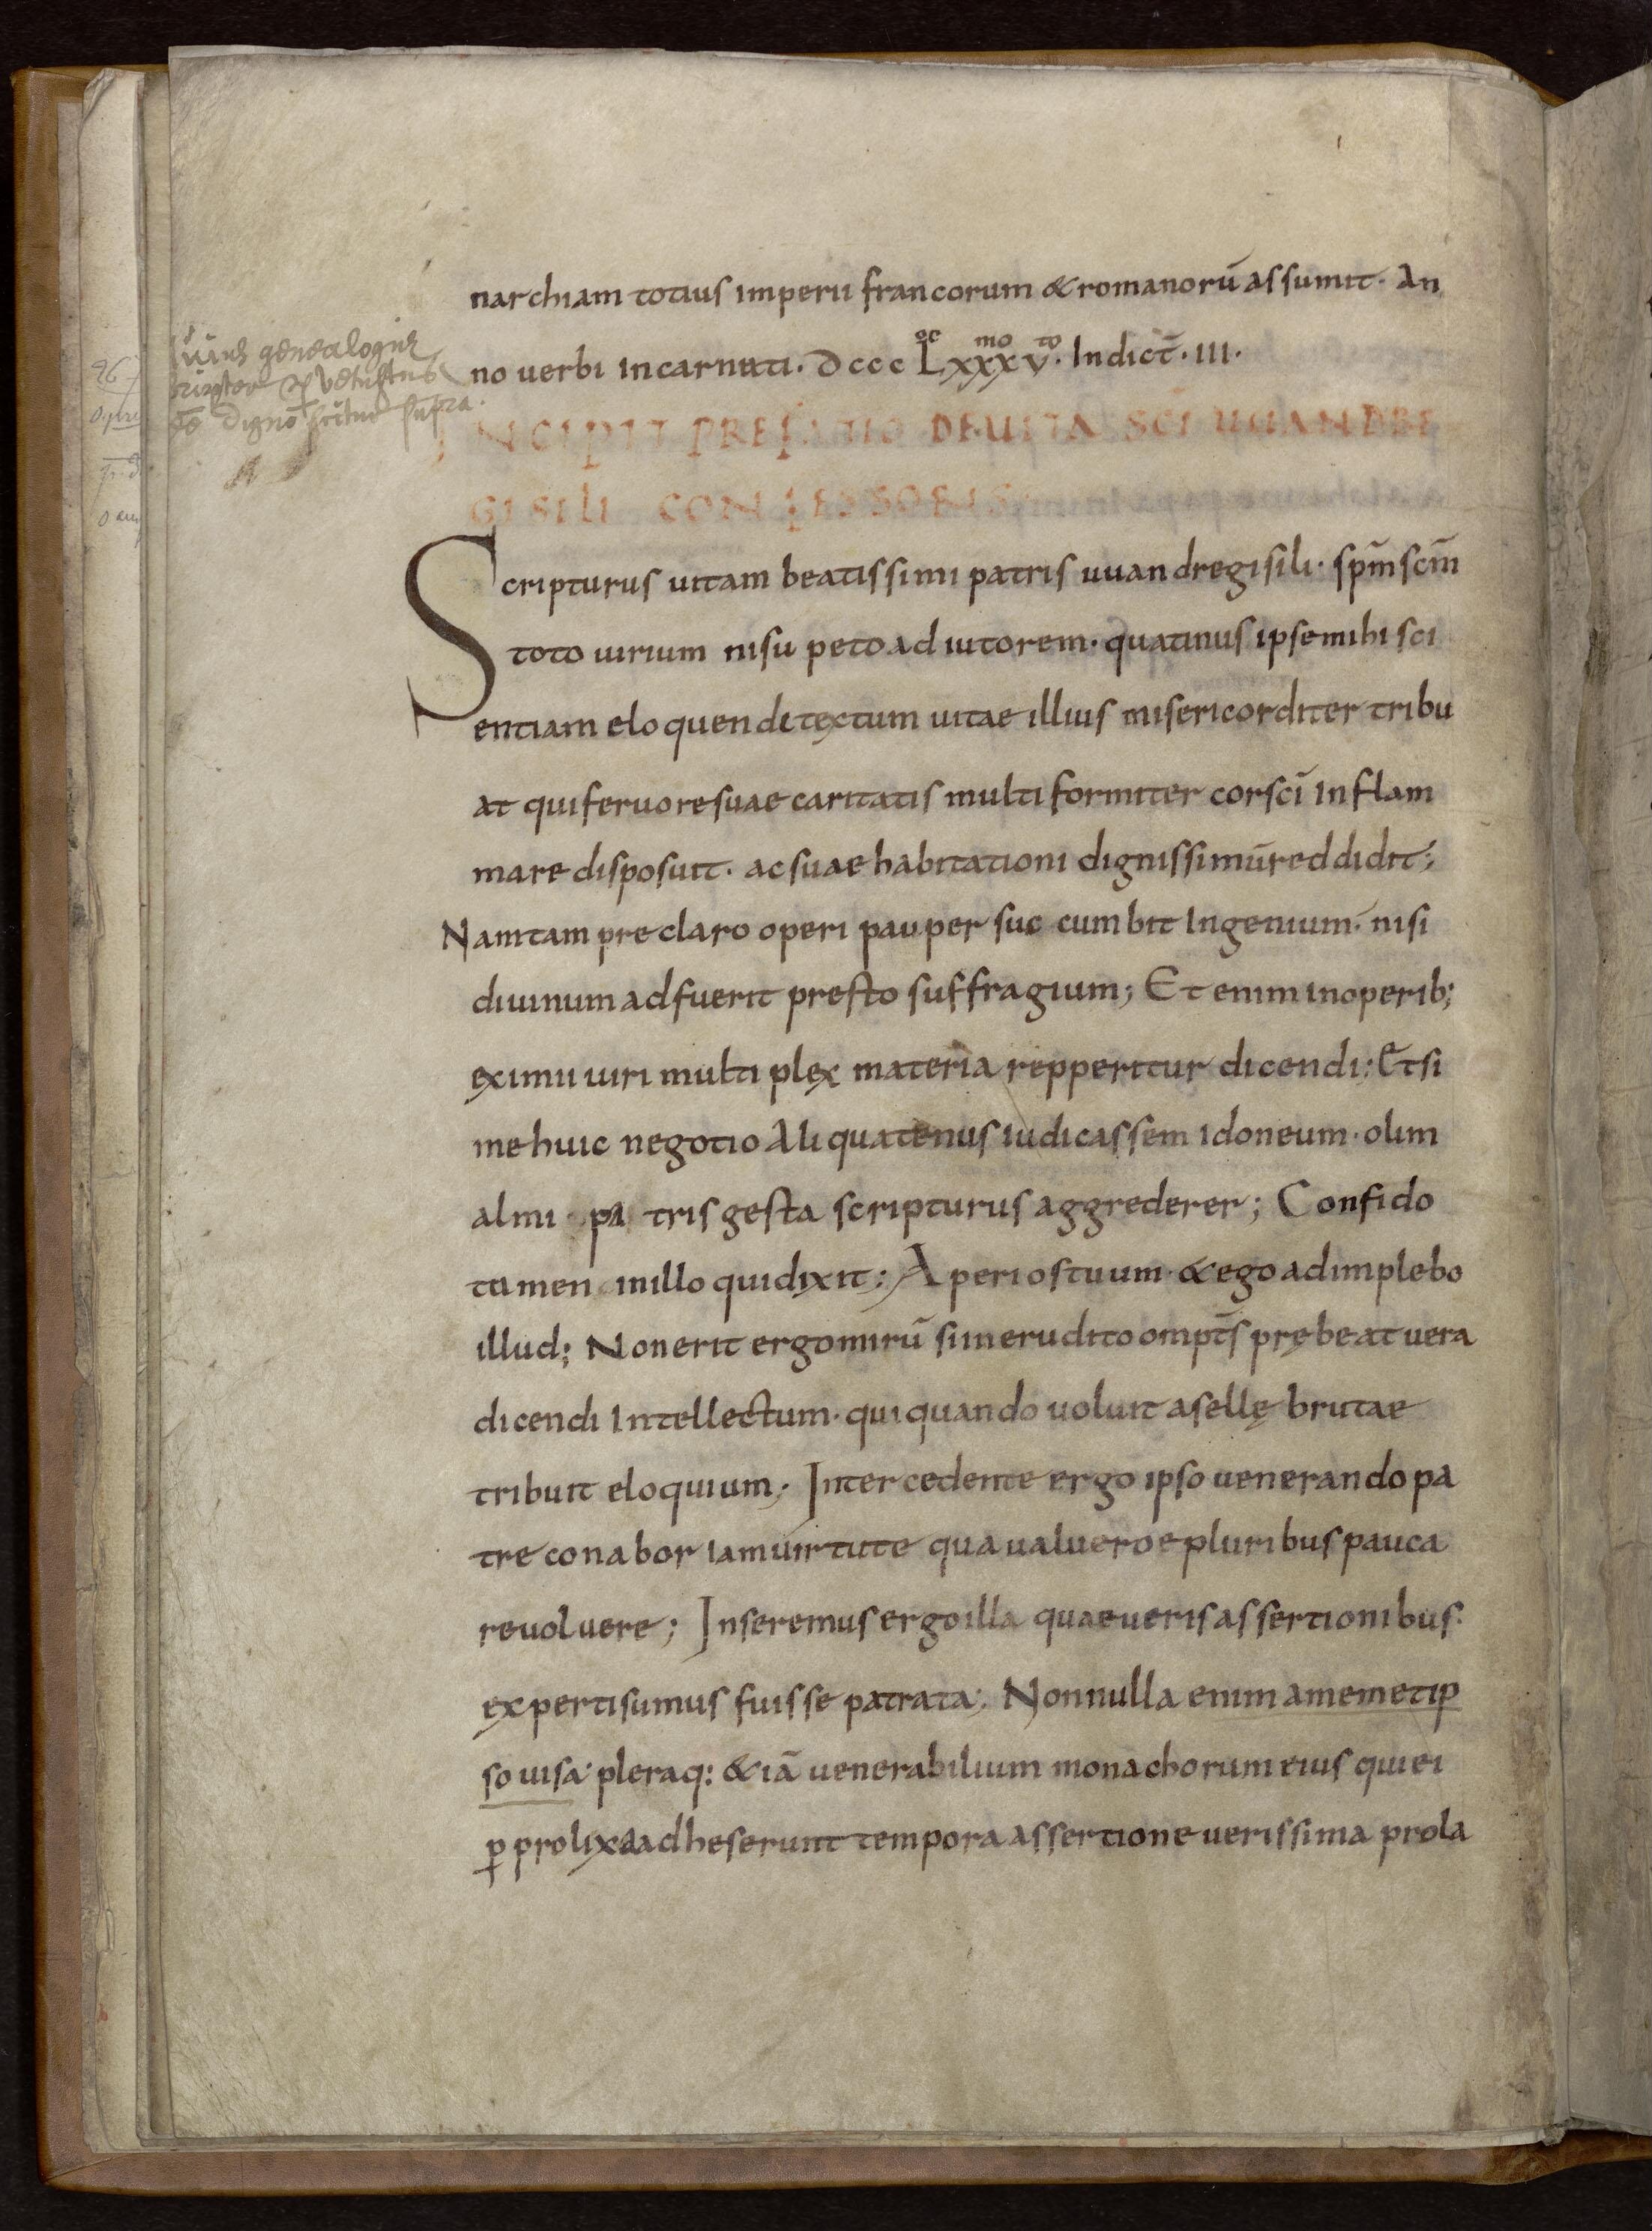 narchiam totius imperii francorum & romanorū assumit. An
no uerbi incarnati. Dccc Lxxxv. Indict̄. III.
INCIPIT PREFATIO DE UITA SC̄I UUANDRE
GISILI CONFESSORIS
Scripturus uitam beatissimi patris uuandregisili. sp̄m sc̄m
toto uirium nisu peto adiutorem. quatinus ipse mihi sci
entiam eloquendi textum uitae illius misericorditer tribu
at qui feruore suae caritatis multiformiter cor sc̄i inflam
mare disposuit. ac suae habitationi dignissimū reddidit;
Nam tam preclaro operi pauper succumbit ingenium. nisi
diuinum adfuerit presto suffragium; Etenim in operib;
eximii uiri multiplex materia repperitur dicendi; Et si
me huic negotio aliquatenus iudicassem idoneum. olim
almi patris gesta scripturus aggrederer; Confido
tamen in illo qui dixit; Aperi os tuum. & ego adimplebo
illud; Non erit ergo mirū si inerudito omp̄ts prębeat uera
dicendi intellectum. qui quando uoluit asellę brutae
tribuit eloquium. Intercedente ergo ipso uenerando pa
tre conabor iam uirtute qua ualuero e pluribus pauca
reuoluere; Inseremus ergo illa quae ueris assertionibus
experti sumus fuisse patrata; Nonnulla enim a memetip
so uisa pleraq; & iā uenerabilium monachorum eius qui ei
ꝑ prolixa adheserunt tempora assertione uerissima prola
genealogiæ